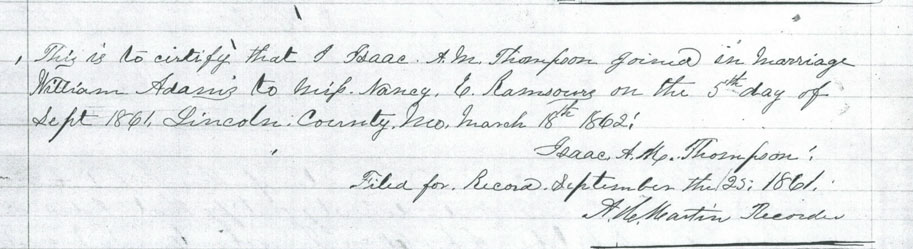 This is to certify that I Isaac. A. M. Thompson joined in marriage
William Adams to Miss. Nancy. E. Ramsours on the 5th day of
Sept 1861. Lincoln. County. Mo. March 18th 1862.
Isaac. A. M. Thompson.
Filed for. Record. September the 25. 1861.
Martin Recorder